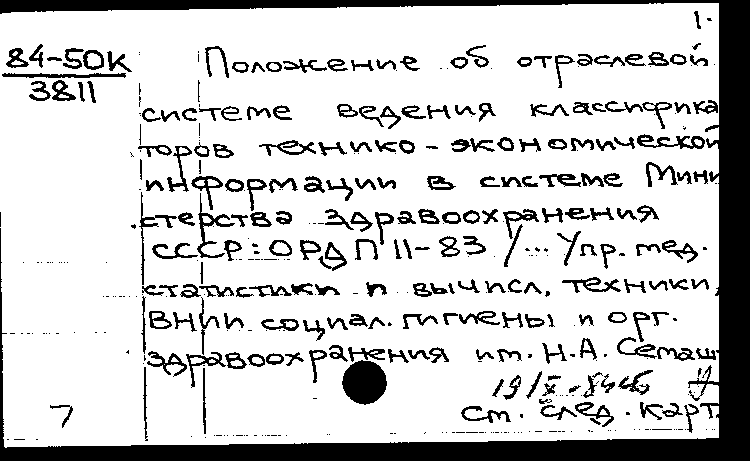 1.
84-50К
3811
Положение об отраслевой
системе ведения классифика
торов технико-экономической
информации в системе Мини
стерства здравоохранения
СССР: ОРД П 11-83 /... Упр. мед.
статистики и вычисл. техники,
ВНИИ социал. гигиены и орг.
здравоохранения им. Н.А. Семаш
19/X-84
см. след. карт.
7